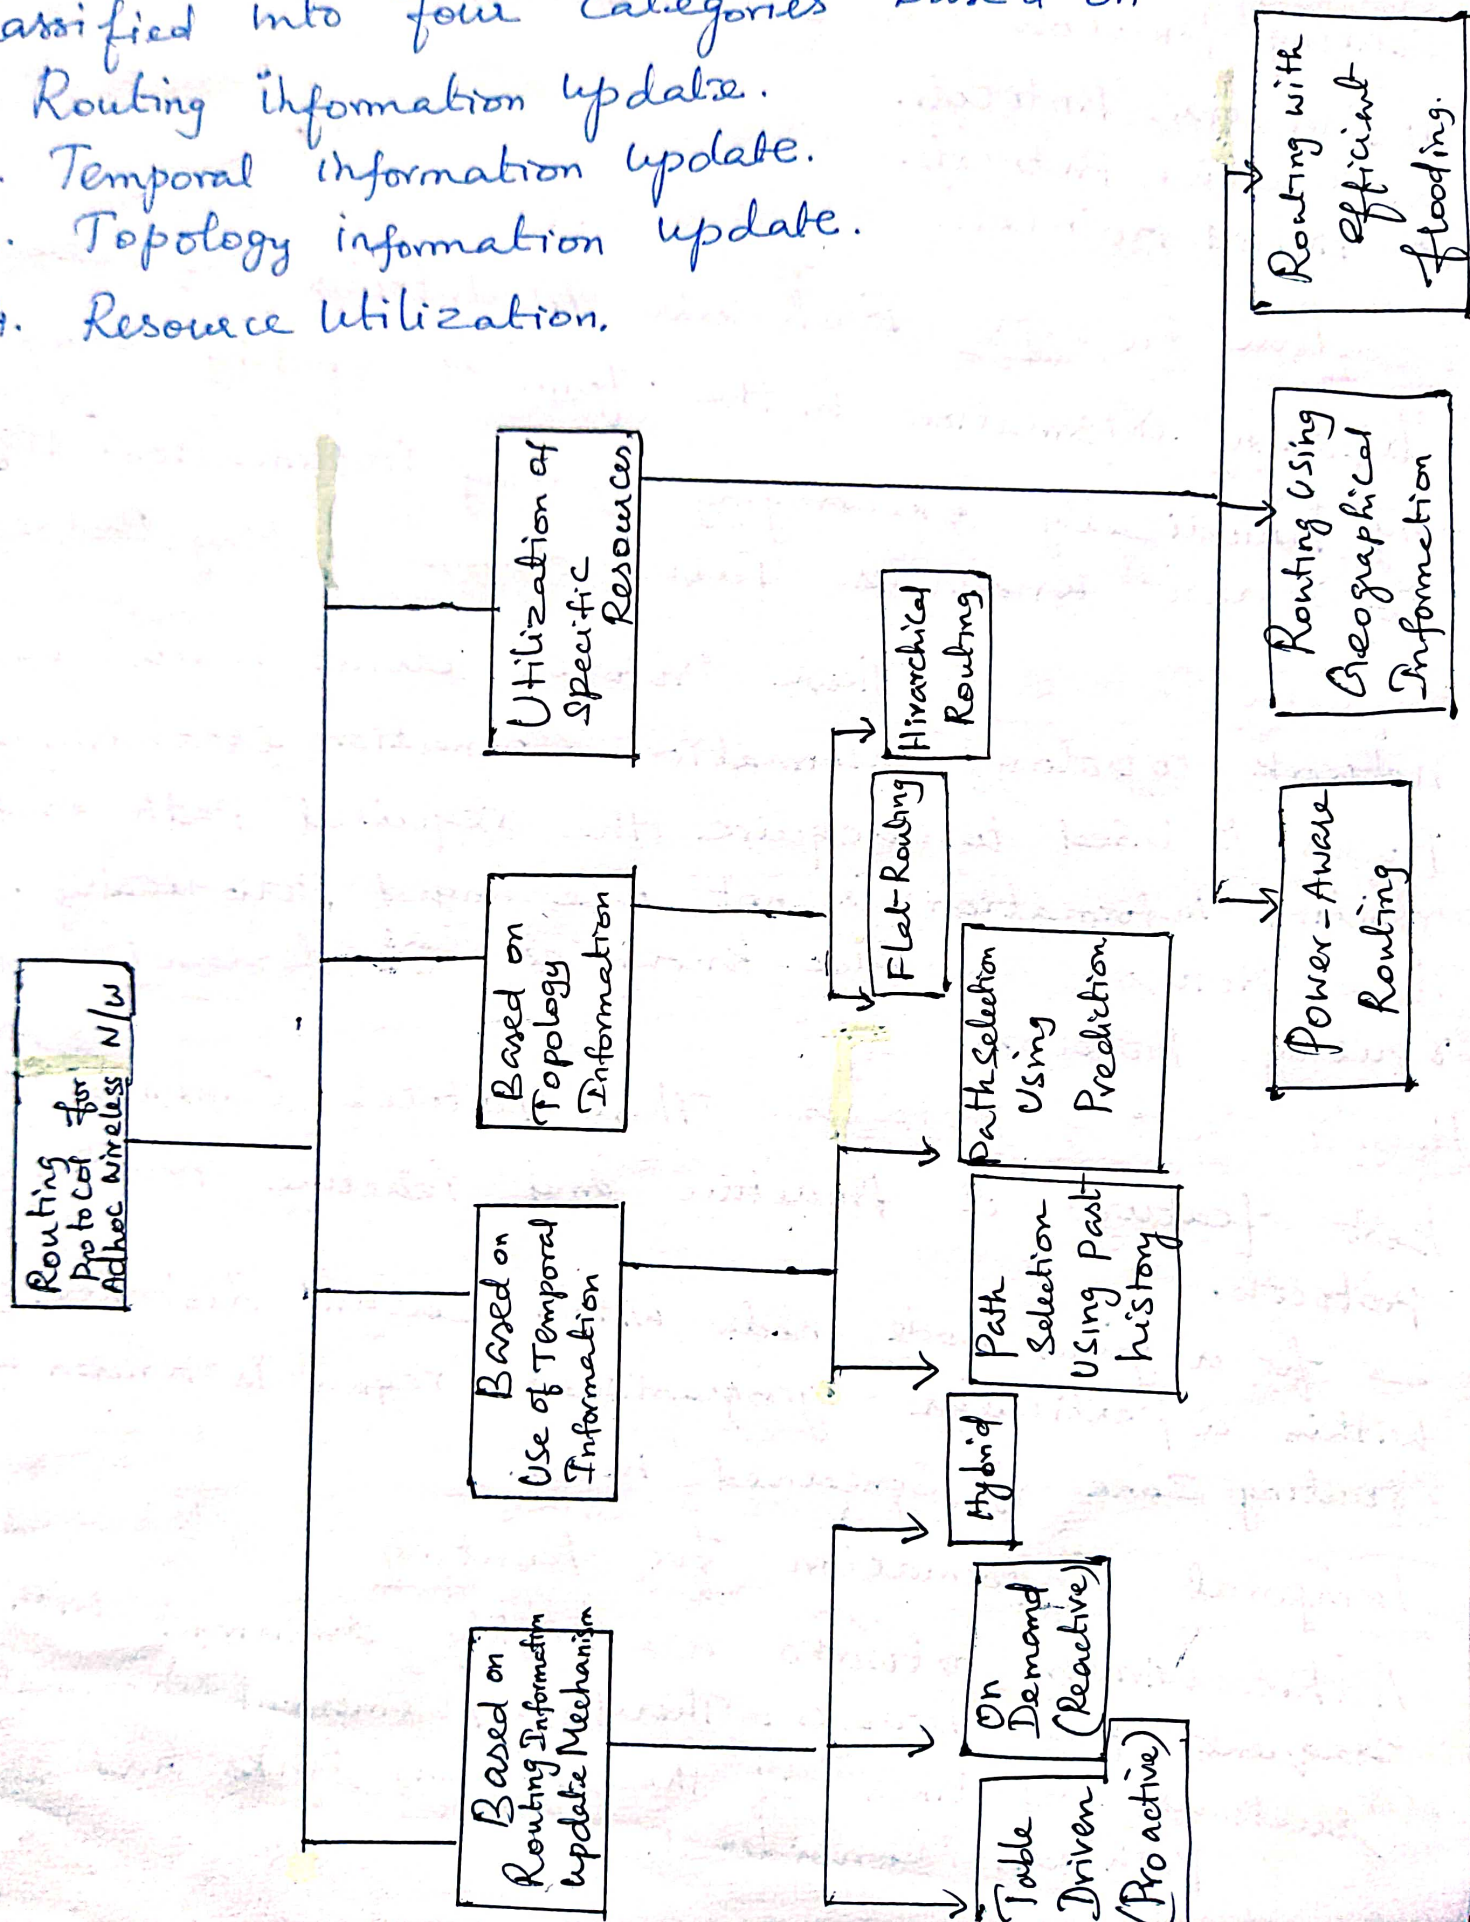 assified into four categories based on
Routing information update.
Temporal information update.
Topology information update.
4. Resource Utilization.
Routing
Protocol for
Adhoc wireless N/W
Based on
Routing Information
update Mechanism
Based on
Use of Temporal
Information
Based on
Topology
Information
Utilization of
Specific
Resources.
Table
Driven
(Proactive)
On
Demand
(Reactive)
Hybrid
Path
Selection
Using Past
history
Path Selection
Using
Prediction
Flat-Routing
Hirarchical
Routing
Power-Aware
Routing
Routing Using
Geographical
Information
Routing with
efficient
flooding.